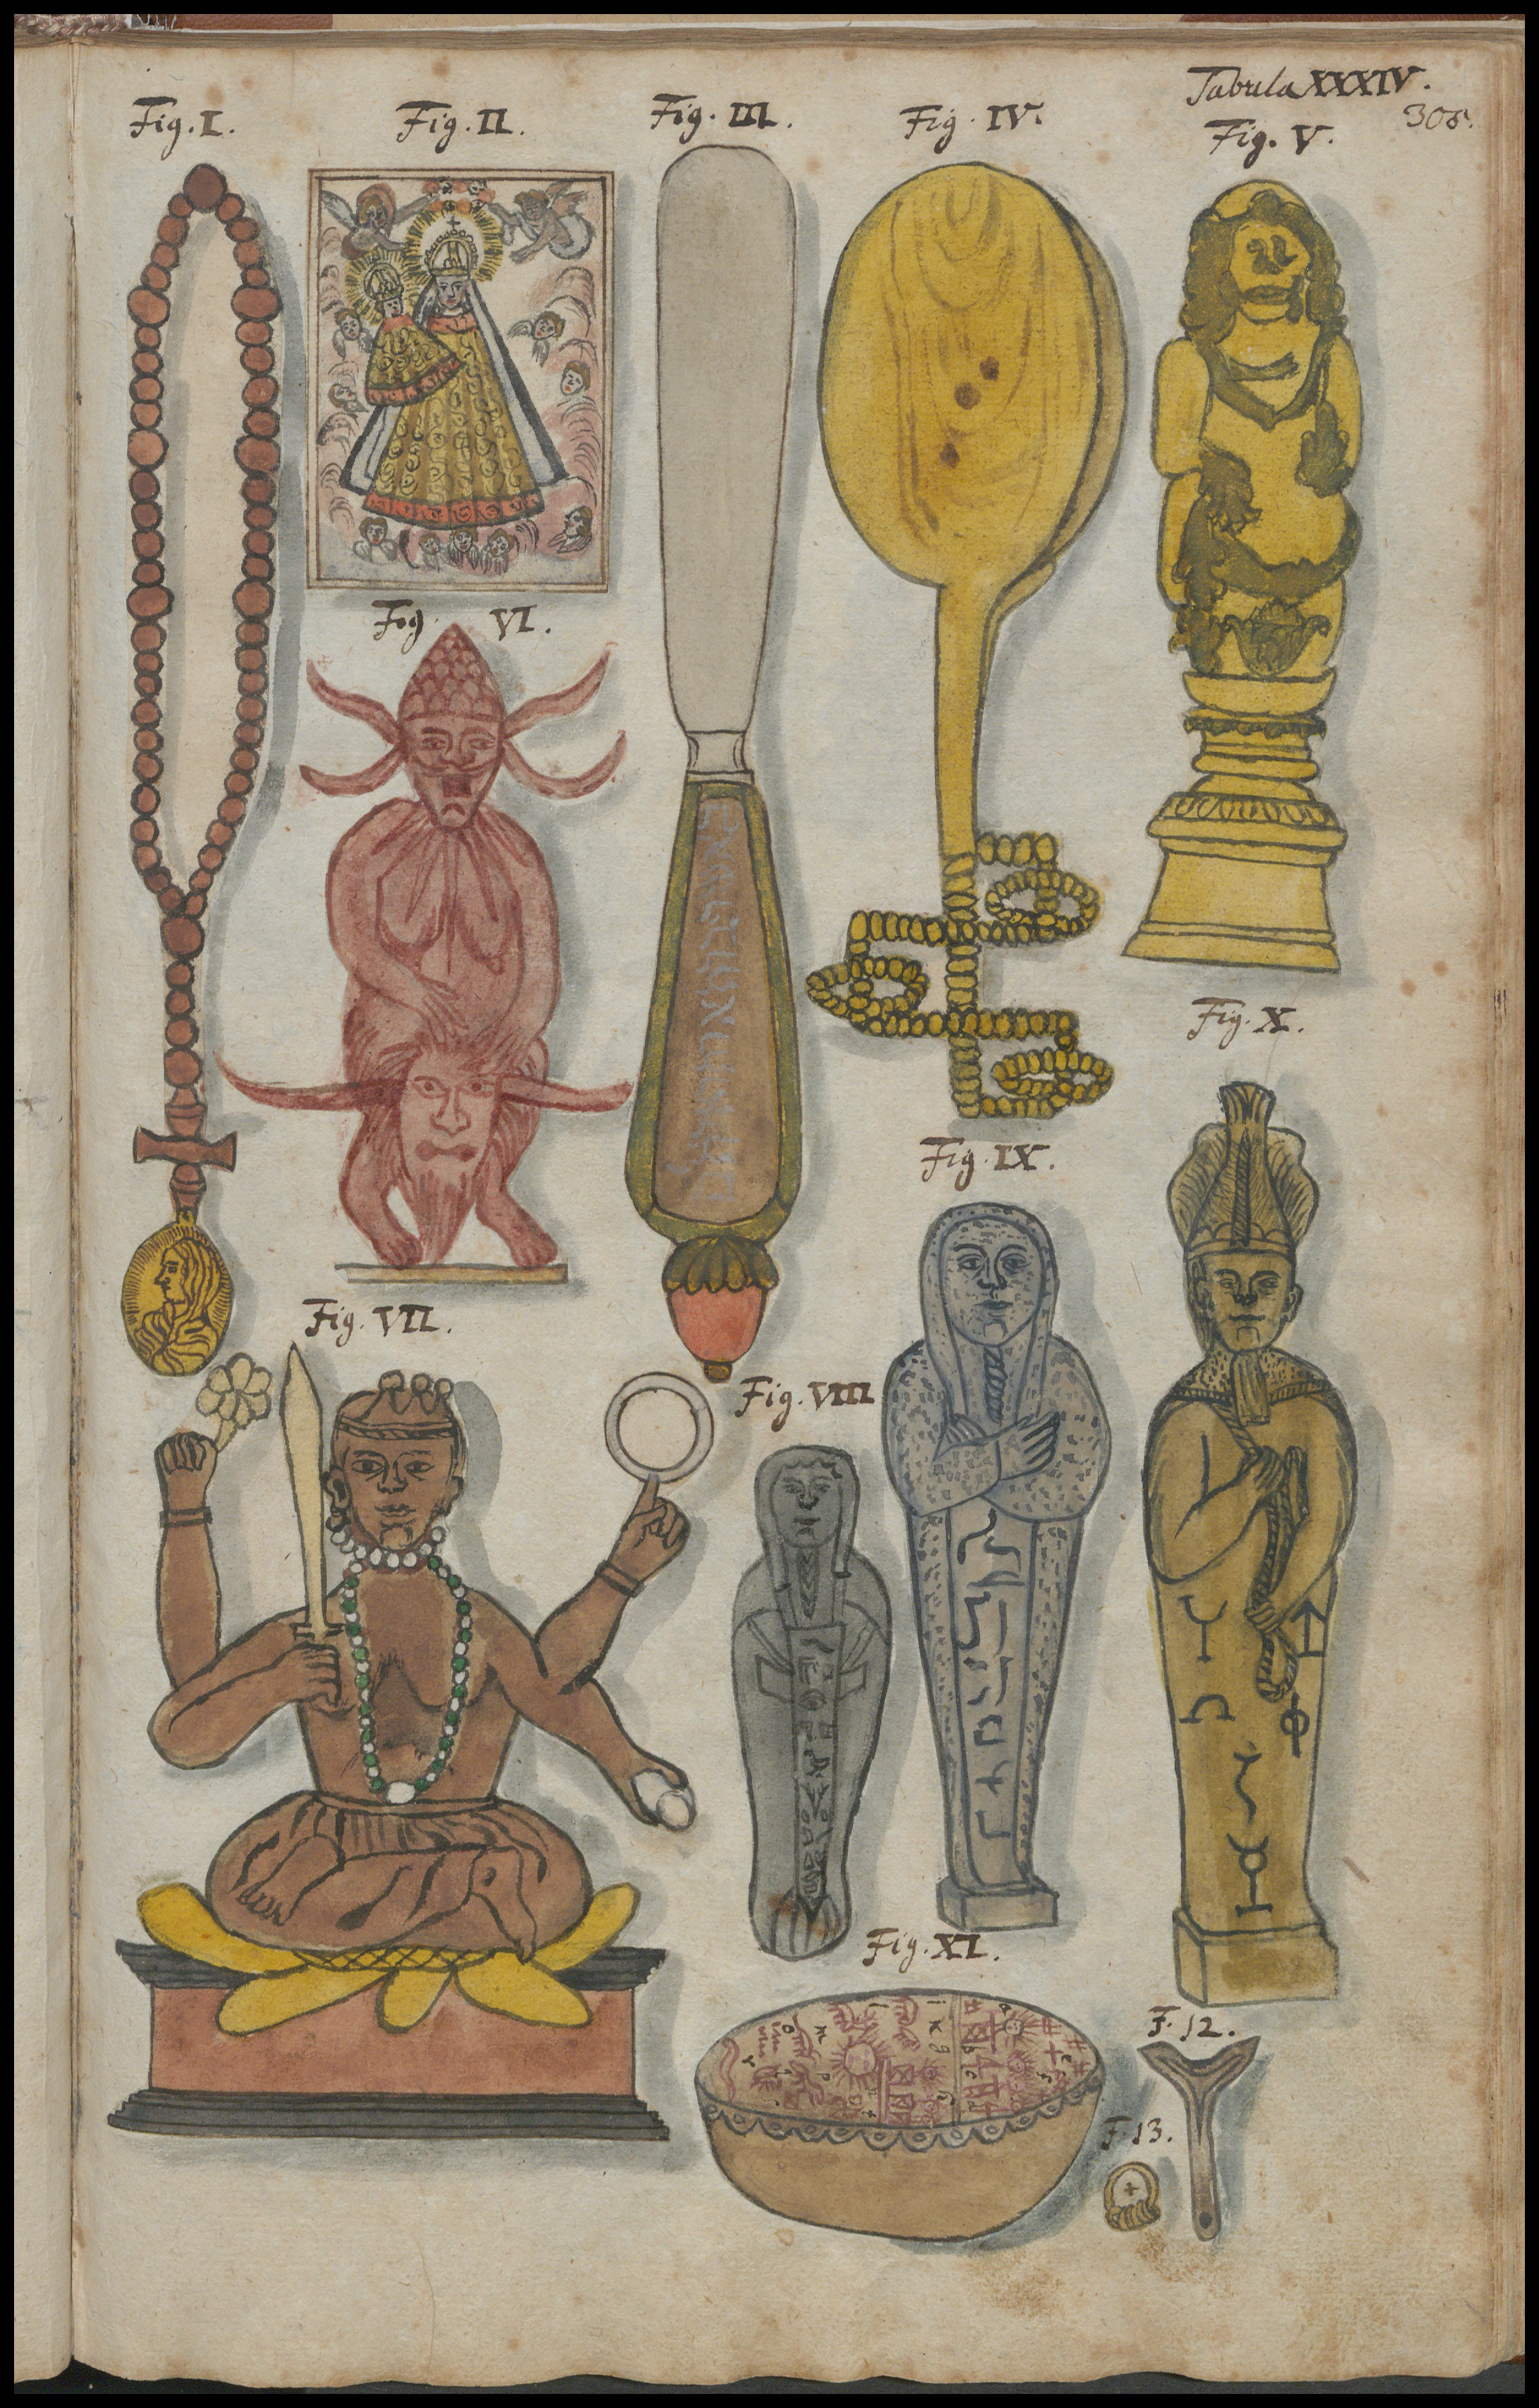 Tabula XXXIV.
305.
Fig. I.
Fig. II.
Fig. III.
Fig. IV.
Fig. V.
Fig. VI.
Fig. VII.
Fig. VIII
Fig. IX.
Fig. X.
Fig. XI.
F. 12.
F. 13.